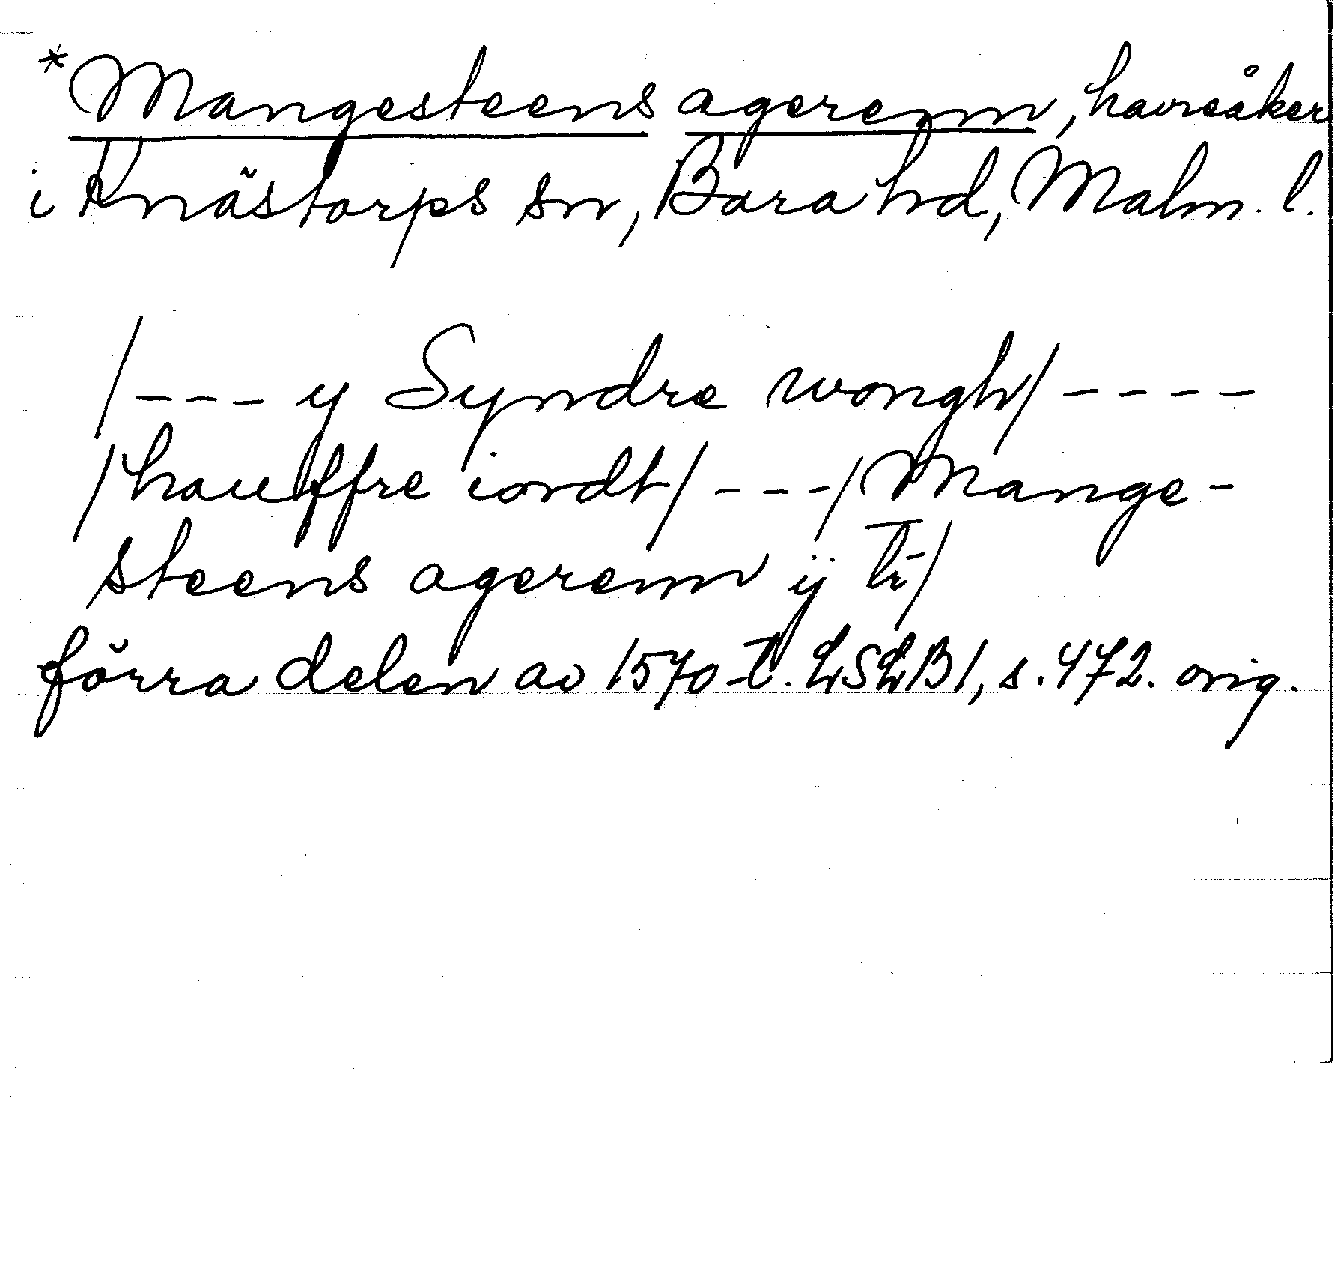 *Mangesteens agerenn, havreåker
i Knästorps sn, Bara hd, Malm. l.
/--- y Syndre wongh/ ----
/hauffre iordt/ ---/ Mange-
steens agerenn ÿ
förra delen av 1570-t. LSLB1, s. 472. orig.